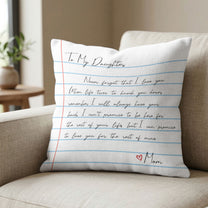 To My Daughter
Never forget that I love you
When life tries to knock you down
remember I will always have your
back I can't promise to be here for
the rest of your life but I can promise
to love you for the rest of mine
Mom